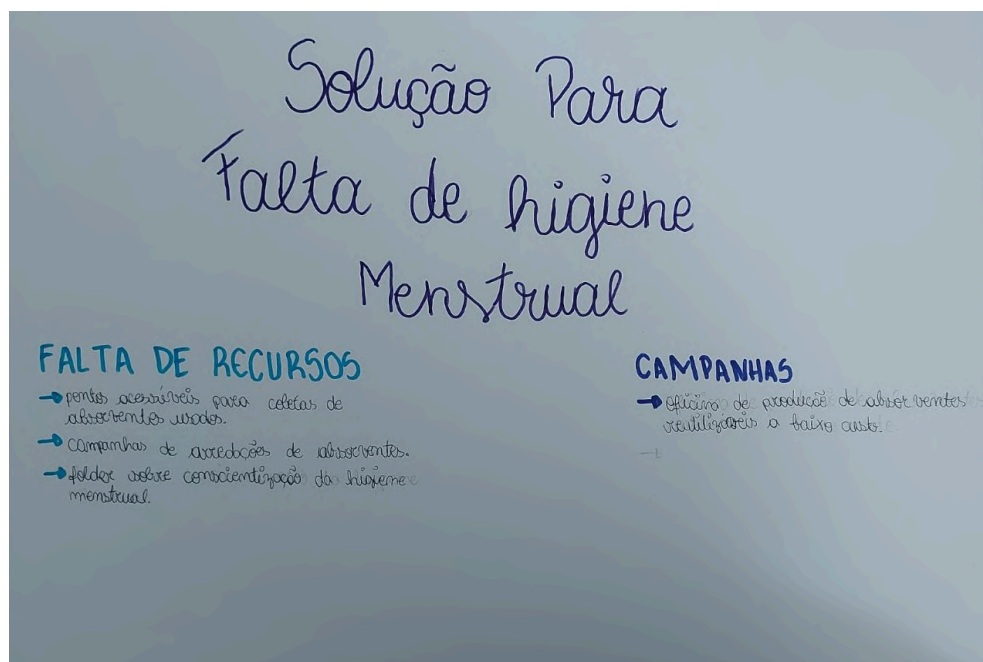 Solução Para
Falta de higiene
Menstrual
FALTA DE RECURSOS
→ pontos acessíveis para coletas de
absorventes usados.
→ campanhas de arredações de absorventes.
→ folder sobre conscientização da higiene
menstrual.
CAMPANHAS
→ oficina de produção de absorventes
reutilizáveis a baixo custo.